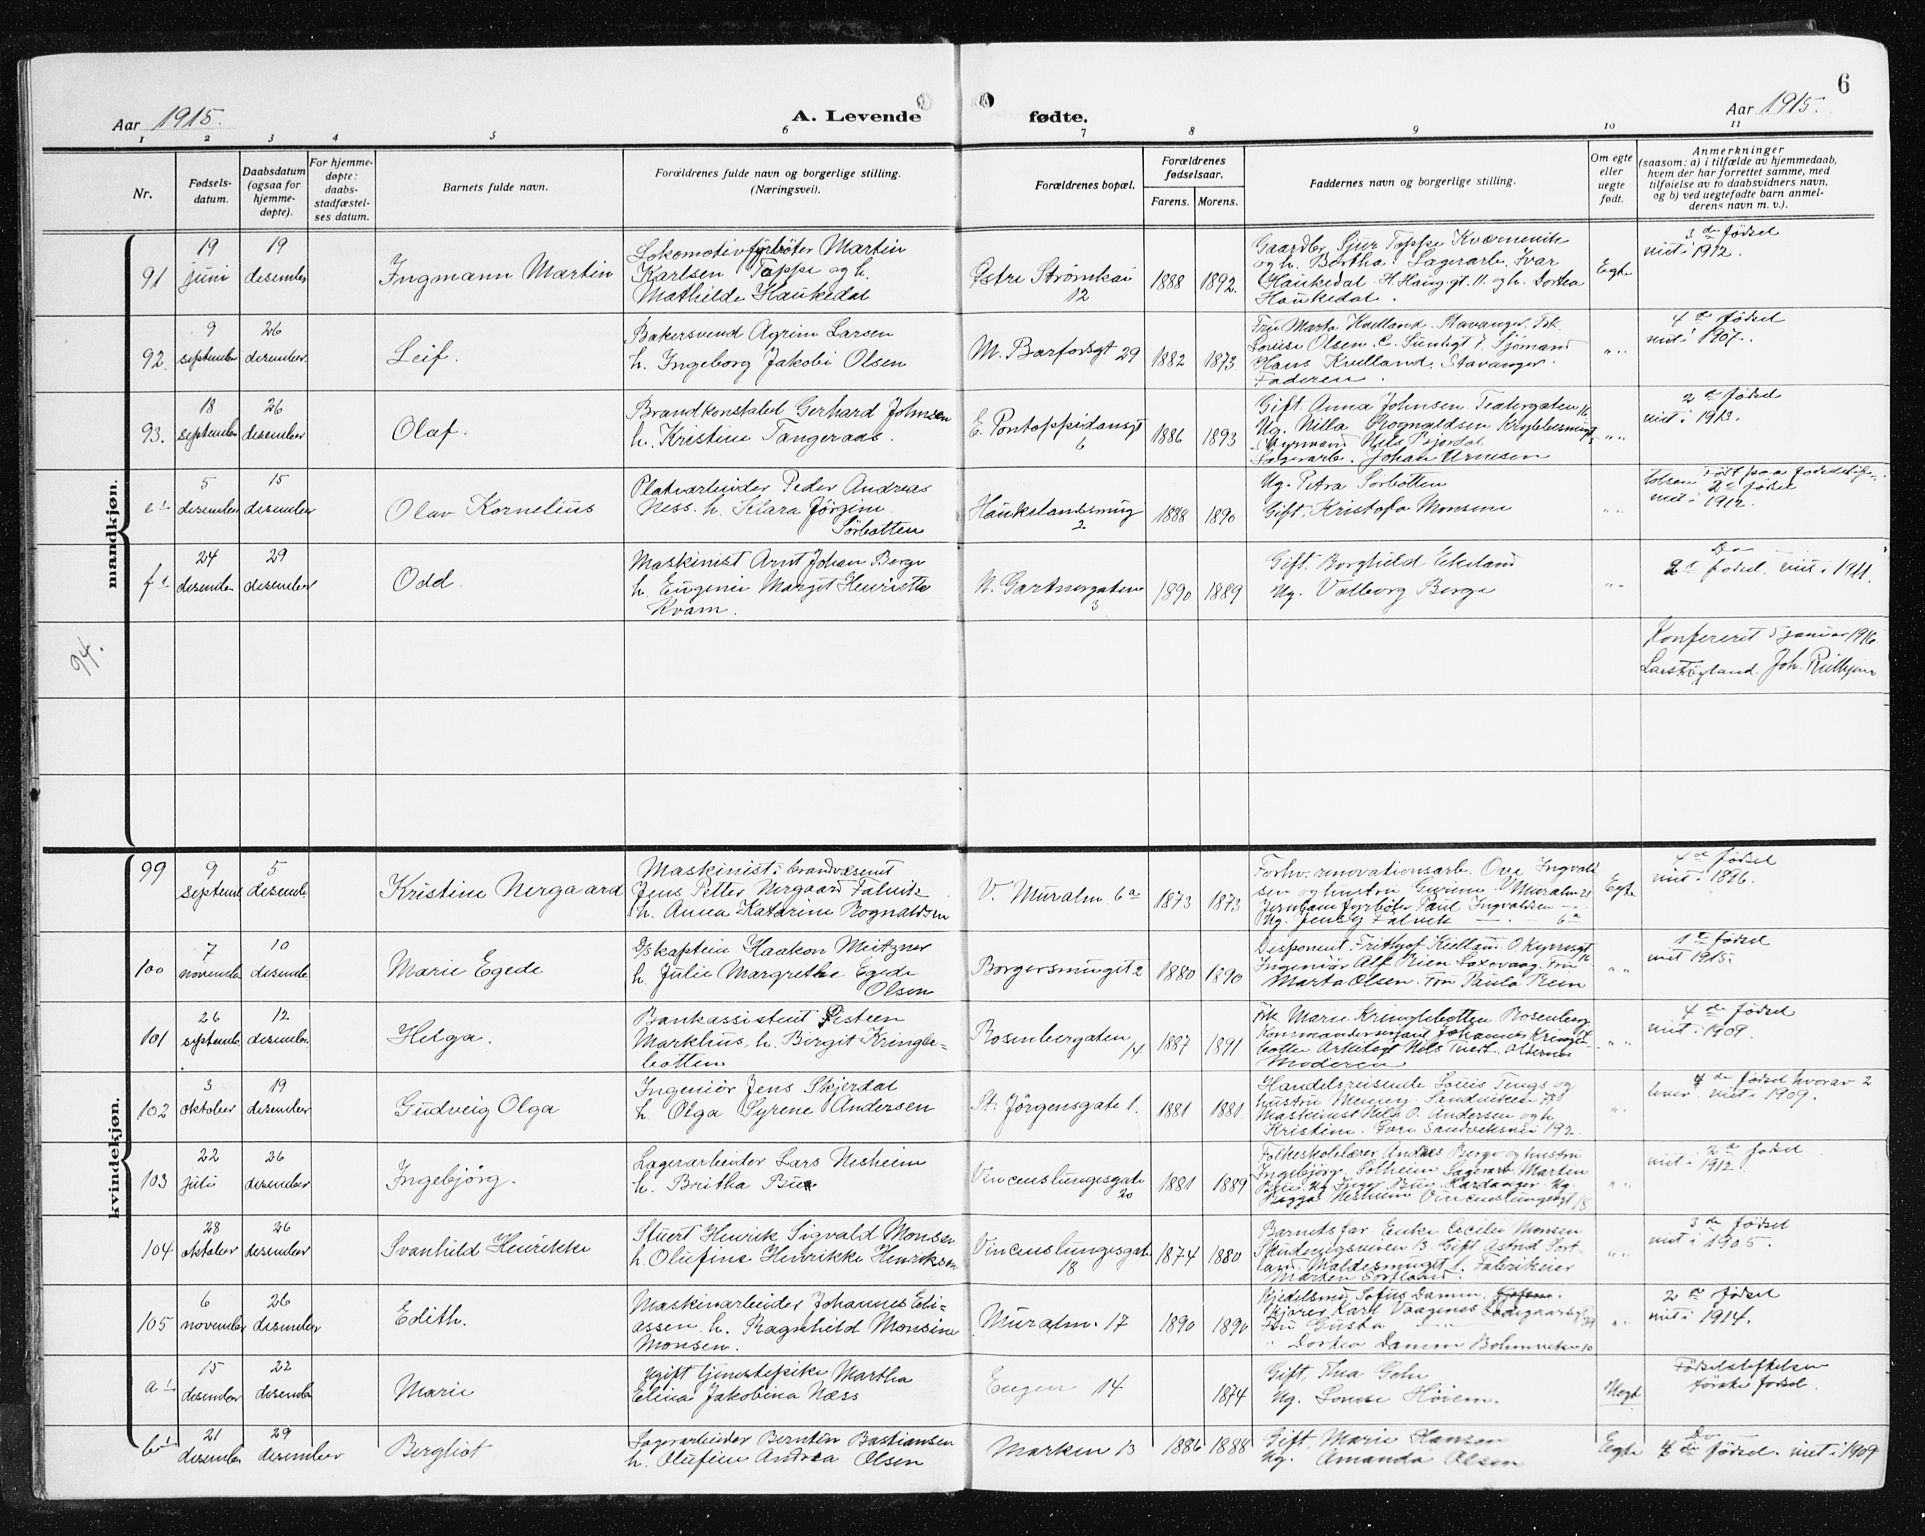 6
Aar 1915.
A. Levende fødte.
Aar 1915.
1 2 3 4 5 6 7 8 9 10 11
Nr.
Fødsels-
datum.
Daabsdatum
(ogsaa for
hjemme-
døpte).
For hjemme-
døpte:
daabs-
stadfæstel-
ses datum.
Barnets fulde navn.
Forældrenes fulde navn og borgerlige stilling.
(Næringsvei).
Forældrenes bopæl.
Forældrenes
fødselsaar.
Farens. Morens.
Faddernes navn og borgerlige stilling.
Om egte
eller
uegte
født.
Anmerkninger
(saasom: a) i tilfælde av hjemmedaab,
hvem der har forrettet samme, med
tilføielse av to daabsvidners navn,
og b) ved uegtefødte barn anmel-
derens navn m. v.).
mandkjøn.
91
19
juni
19
desember
Ingmann Martin
Lokomotivfyrbøter Martin
Karlsen Toppe og h.
Mathilde Haukedal
Østre Strømkai
12
1888 1892.
Gaardbr. Sjur Toppe Kværnevik
og h. Bertha. Lagerarb. Ivar
Haukedal. H. Haug.gt. 11. og h. Dortea
Haukedal.
Egte
3de fødsel
næst i 1912.
92.
9
september
26
desember
Leif.
Bakersvend Agrim Larsen
h. Ingeborg Jakobi Olsen
M. Barfodsgt 29
1882 1873
Fru Marta Kielland. Stavanger. Frk.
Louise Olsen. C. Sundtgt 7. Sjømand
Hans Kielland. Stavanger.
Faderen.
" "
4de fødsel
næst i 1907.
93.
18
september
26
desember
Olaf.
Brandkonstabel Gerhard Johnsen
h. Kristine Tangeraas.
E. Pontoppidansgt
6
1886 1893
Gift. Anna Johnsen. Teatergaten 16
Ug. Nilla Rognaldsen
Styrmand Nils Bjordal
Lagerarb. Johan Arnesen
" "
2de fødsel
næst i 1913.
e1
5
desember
15
desember
Olav Kornelius
Platearbeider Peder Andreas
Ness. h. Klara Jørgine
Sørbotten
Haukelandssmug
2
1888 1890
Ug. Petra Sorbotten
Gift. Kristofa Monsene
" "
født paa fødselsst.
2de fødsel
næst i 1912.
f1
24
desember
29
desember
Odd.
Maskinist Arnt Johan Berge
h. Eugenie Margit Henriette
Kvam.
N. Gartnergaten
3
1890 1889
Gift. Borghild Ekeland
Ug. Valborg Berge
" "
Do
2de fødsel næst i 1911.
94.
Konfereret 5 januar 1916
Lars Høyland. Joh.
kvindekjøn.
99
9
septemb
5
desembe
Kristine Nergaard
Maskinist i brandvæsenet
Jens Petter Nergaard Falvik
h. Anna Katarine Rognaldsen
V. Muralm. 6a
1873 1873
Forhv. renovationsarb. Ove Ingvald
sen og hustru Gurine V Muralm 21
Jernbanefyrbøter Paul Ingvaldsen
Ug. Jenny Falvik — 6a
Egte
4de fødsel
næst i 1896.
100
7
november
10
desembe
Marie Egede
D/skaptein Haakon Meitzner
h. Julie Margrethe Egede
Olsen
Borgersmuget 2
1880 1890
Disponent. Frithjof Kielland. O Kyrresgt 16
Ingeniør Alf Rein Laxevaag. Fru
Marta Olsen. Fru Paula Rein
" "
1te fødsel
næst 1915.
101
26
septemb.
12
desember.
Helga.
Bankassistent Sisteen
Marktius, h. Birgit Kringle-
botten
Rosenbergaten
14
1887 1891
Frk. Marie Kringlebotten Rosenberg
Kommandersersjant Johannes Kringle
botten Arkitegt Nils Tvedt. Olsernes
Moderen
" "
4de fødsel
næst i 1909.
102
3
oktober
19
desember
Gudveig Olga
Ingeniør Jens Skjerdal
h. Olga Syrene Andersen
St. Jørgensgate 1.
1881 1881.
Handelsreisende Louis Tengs og
hustru Menny. Sandviksvei
Maskinist Nils O. Andersen og h.
Kristine. Øvre Sandviksvei 192.
" "
4de fødsel hvorav 2
næst i 1909.
103
22
juli
26
desember
Ingebjørg.
Lagerarbeider Lars Nesheim
h. Britha Bue
Vincenslungesgate
20
1881 1889
Folkeskolelærer Anders Berge og hustru
Ingebjørg. Solheim Lagerarb Martin
Bue. Ug Inger Bue. Hardanger. Ug.
Nesheim Vincenslungesgt 18
" "
2de fødsel
næst i 1912.
104
28
oktober
26
desember
Svanhild Henrikke
Stuert Henrik Sigvald Monsen
h. Olufine Henrikke Henriksen
Vincenslungesgate
18
1874 1880
Barnets far Enke Cecilie Monsen
Skuteviksveien 13 Gift Astrid Sort-
land. Maldesmuget 1. Fabrikeier
Morten Sortland.
" "
3de fødsel
næst i 1905.
105
6
november
26
desember
Edith.
Maskinarbeider Johannes Edi-
assen h. Ragnhild Monsine
Monsen.
Muralm. 17
1890 1890
Kjedelsmed Sofus Damm.
Kjører Karl Vaagenes Ladegaardsgt 39
Fru Gusta —
" Dortea Damm Bohmveien 10
" "
2de fødsel
næst i 1914.
a1
15
desember
22
desembe
Marie
Ugift tjenestepike Martha
Elina Jakobina Næss
Engen 14
1874
Gift, Thea Gehn
Ug. Louise Høiem.
Uegte
Fødselsstiftelsen
første fødsel.
b1
21
desember
29
desember
Bergliot
Lagerarbeider Berntin Bastiansen
h. Olufine Andrea Olsen
Marken 13
1886 1888
Gift. Marie Hansen
Ug. Amanda Olsen
Egte
Do
4de fødsel. næst i 1909